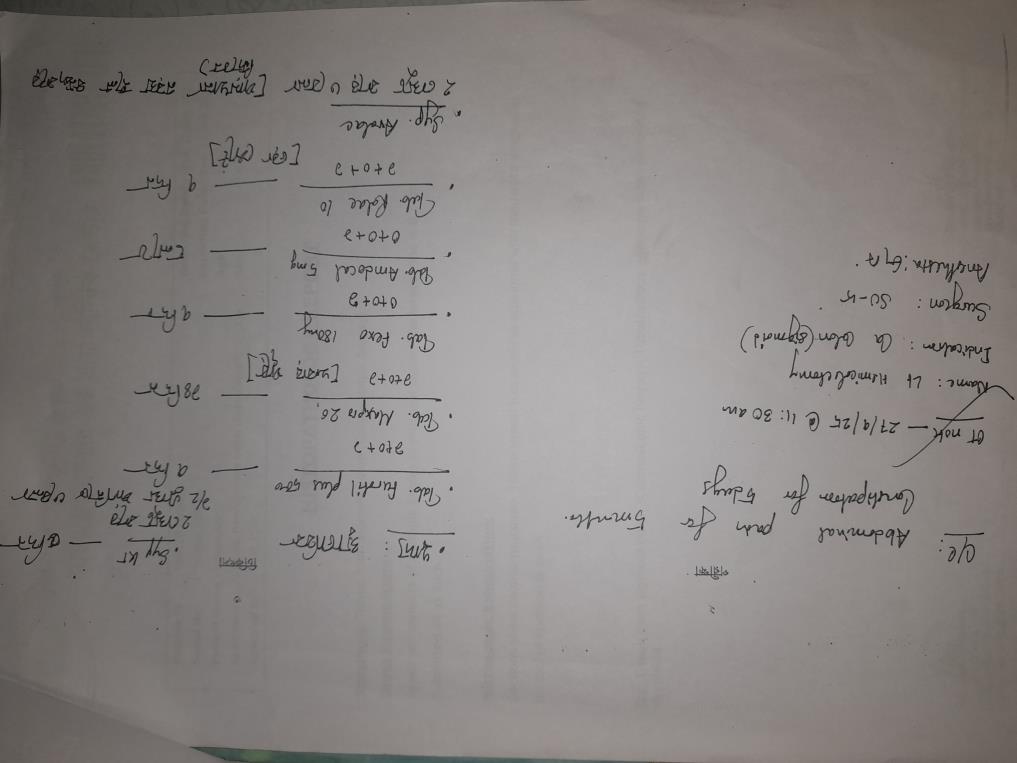 পরীক্ষা
C/C: Abdominal pain for 5 months.
Constipation for 5 days
OT note — 27/9/25 @ 11:30 am
Name: Lt Hemicolectomy
Indication: Ca Colon (Sigmoid)
Surgeon: SU-
Anesthesia: G/A.
চিকিৎসা
• পথ্য: স্বাভাবিক
• Syp KT — ৫ দিন
২ চামচ করে
১/২ গ্লাস পানিতে ৩ বেলা
• Tab. Furotil plus 500
১+০+১ — ৭ দিন
• Tab. Maxpro 20,
১+০+১ [খাবার পূর্বে] — ১৪ দিন
Tab. Fexo 180mg
০+০+১ — ৭ দিন
• Tab. Amdocal 5mg
০+০+১ — চলবে
• Tab. Rolac 10
১+০+১ [ভরা পেটে] — ৭ দিন
• Syp. Avolac
২ চামচ করে ৩ বেলা [পায়খানা নরম হলে বন্ধ করে
দিবেন)